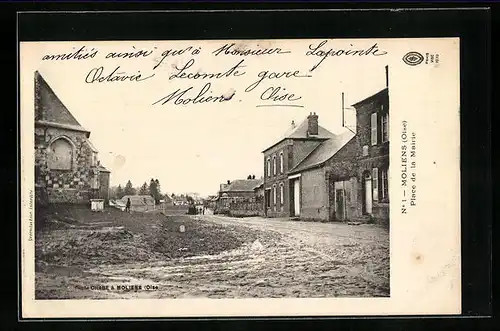 amitiés ainsi qu'à Monsieur Lapointe
Octavie Lecomte gare
Moliens. Oise
N° 1 — MOLIENS (Oise)
Place de la Mairie
CHABE à MOLIENS (Oise